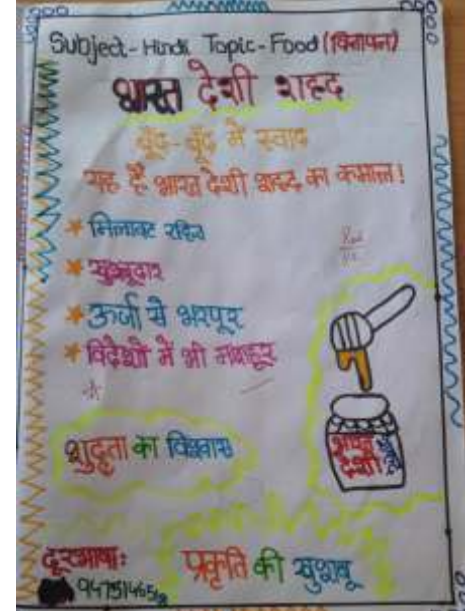 Subject-Hindi Topic-Food (विज्ञापन)
भारत देशी शहद
बूँद-बूँद में स्वाद
यह है भारत देशी शहद का कमाल!
* मिलावट रहित
* खुशबूदार
* ऊर्जा से भरपूर
* विदेशों में भी मशहूर
शुद्धता का विश्वास
भारत देशी
दूरभाषः
प्रकृति की खुशबू